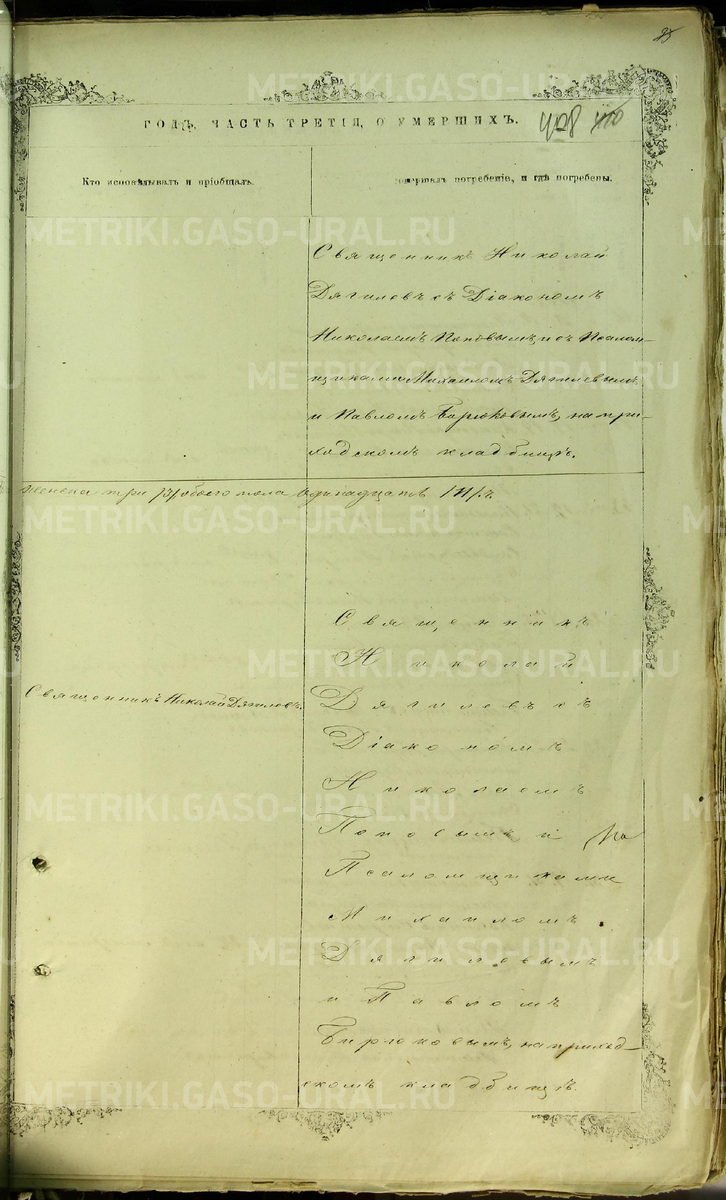 28
ГОДЪ, ЧАСТЬ ТРЕТІЯ, О УМЕРШИХЪ.
428
Кто исповѣдывалъ и пріобщалъ.
совершалъ погребеніе, и гдѣ погребены.
Священникъ Николай
Дягилевъ съ Діакономъ
Николаемъ Поповымъ и съ Псалом-
щиками Михаиломъ Дягилевымъ
и Павломъ Бирюковымъ, на при-
ходскомъ кладбищѣ.
женска три обоего пола одинадцать
Священникъ
Николай
Священникъ Николай Дягилевъ.
Дягилевъ съ
Діакономъ
Николаемъ
Поповымъ и
Псаломщиками
Михаиломъ
Дягилевымъ
и Павломъ
Бирюковымъ, на приход-
скомъ кладбищѣ.
METRIKI.GASO-URAL.RU